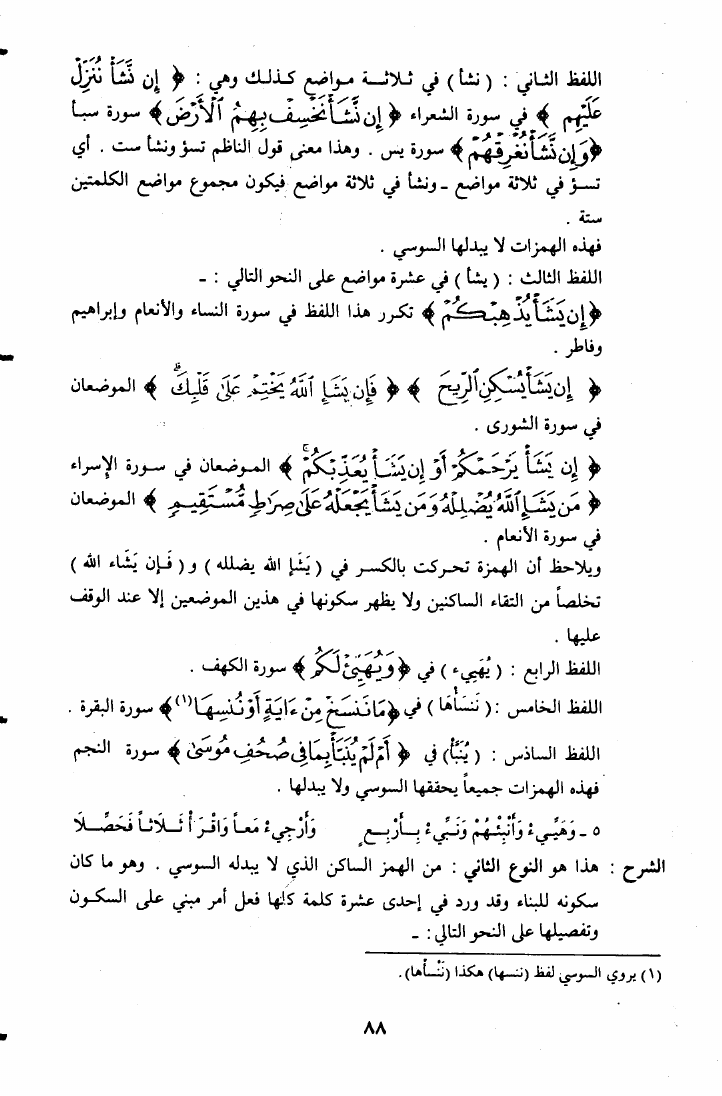 اللفظ الثاني : ( نشأ ) في ثلاثة مواضع كذلك وهي : ﴿ إِن نَّشَأْ نُنَزِّلْ
عَلَيْهِم ﴾ في سورة الشعراء ﴿ إِن نَّشَأْ نَخْسِفْ بِهِمُ الْأَرْضَ ﴾ سورة سبأ
﴿ وَإِن نَّشَأْ نُغْرِقْهُمْ ﴾ سورة يس . وهذا معنى قول الناظم تسؤ ونشأ ست . أي
تسؤ في ثلاثة مواضع - ونشأ في ثلاثة مواضع فيكون مجموع مواضع الكلمتين
ستة .
فهذه الهمزات لا يبدلها السوسي .
اللفظ الثالث : ( يشأ ) في عشرة مواضع على النحو التالي : -
﴿ إِن يَشَأْ يُذْهِبْكُمْ ﴾ تكرر هذا اللفظ في سورة النساء والأنعام وإبراهيم
وفاطر .
﴿ إِن يَشَأْ يُسْكِنِ الرِّيحَ ﴾ ﴿ فَإِن يَشَإِ اللَّهُ يَخْتِمْ عَلَىٰ قَلْبِكَ ۗ ﴾ الموضعان
في سورة الشورى .
﴿ إِن يَشَأْ يَرْحَمْكُمْ أَوْ إِن يَشَأْ يُعَذِّبْكُمْ ۚ ﴾ الموضعان في سورة الإسراء
﴿ مَن يَشَإِ اللَّهُ يُضْلِلْهُ وَمَن يَشَأْ يَجْعَلْهُ عَلَىٰ صِرَاطٍ مُّسْتَقِيمٍ ﴾ الموضعان
في سورة الأنعام .
ويلاحظ أن الهمزة تحركت بالكسر في ( يَشَإِ الله يضلله ) و ( فَإِن يَشَاء الله )
تخلصاً من التقاء الساكنين ولا يظهر سكونها في هذين الموضعين إلا عند الوقف
عليها .
اللفظ الرابع : ( يُهَيِىء ) في ﴿ وَيُهَيِّئْ لَكُم ﴾ سورة الكهف .
اللفظ الخامس : ( نَنسَأْهَا ) في ﴿ مَا نَنسَخْ مِنْ ءَايَةٍ أَوْ نُنسِهَا (١) ﴾ سورة البقرة .
اللفظ السادس : ( يُنَبَّأْ ) في ﴿ أَمْ لَمْ يُنَبَّأْ بِمَا فِي صُحُفِ مُوسَىٰ ﴾ سورة النجم
فهذه الهمزات جميعاً يحققها السوسي ولا يبدلها .
٥ - وَهَيِّىءْ وَأَنْبِئْهُمْ وَنَبِّىءْ بِأَرْبَعٍ وَأَرْجِىءْ مَعاً وَاقْرَأْ ثَلاَثاً فَحَصِّلاَ
الشرح : هذا هو النوع الثاني : من الهمز الساكن الذي لا يبدله السوسي . وهو ما كان
سكونه للبناء وقد ورد في إحدى عشرة كلمة كلها فعل أمر مبني على السكون
وتفصيلها على النحو التالي : -
(١) يروي السوسي لفظ (ننسها) هكذا (نَنْسأها).
٨٨